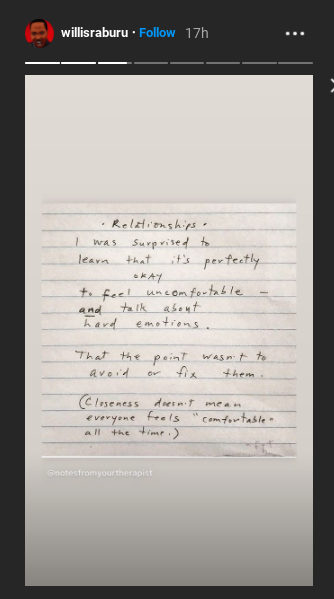 willisraburu · Follow 17h
· Relationships ·
I was surprised to
learn that it's perfectly
okay
to feel uncomfortable –
and talk about
hard emotions.
That the point wasn't to
avoid or fix them.
(Closeness doesn't mean
everyone feels "comfortable"
all the time.)
@notesfromyourtherapist